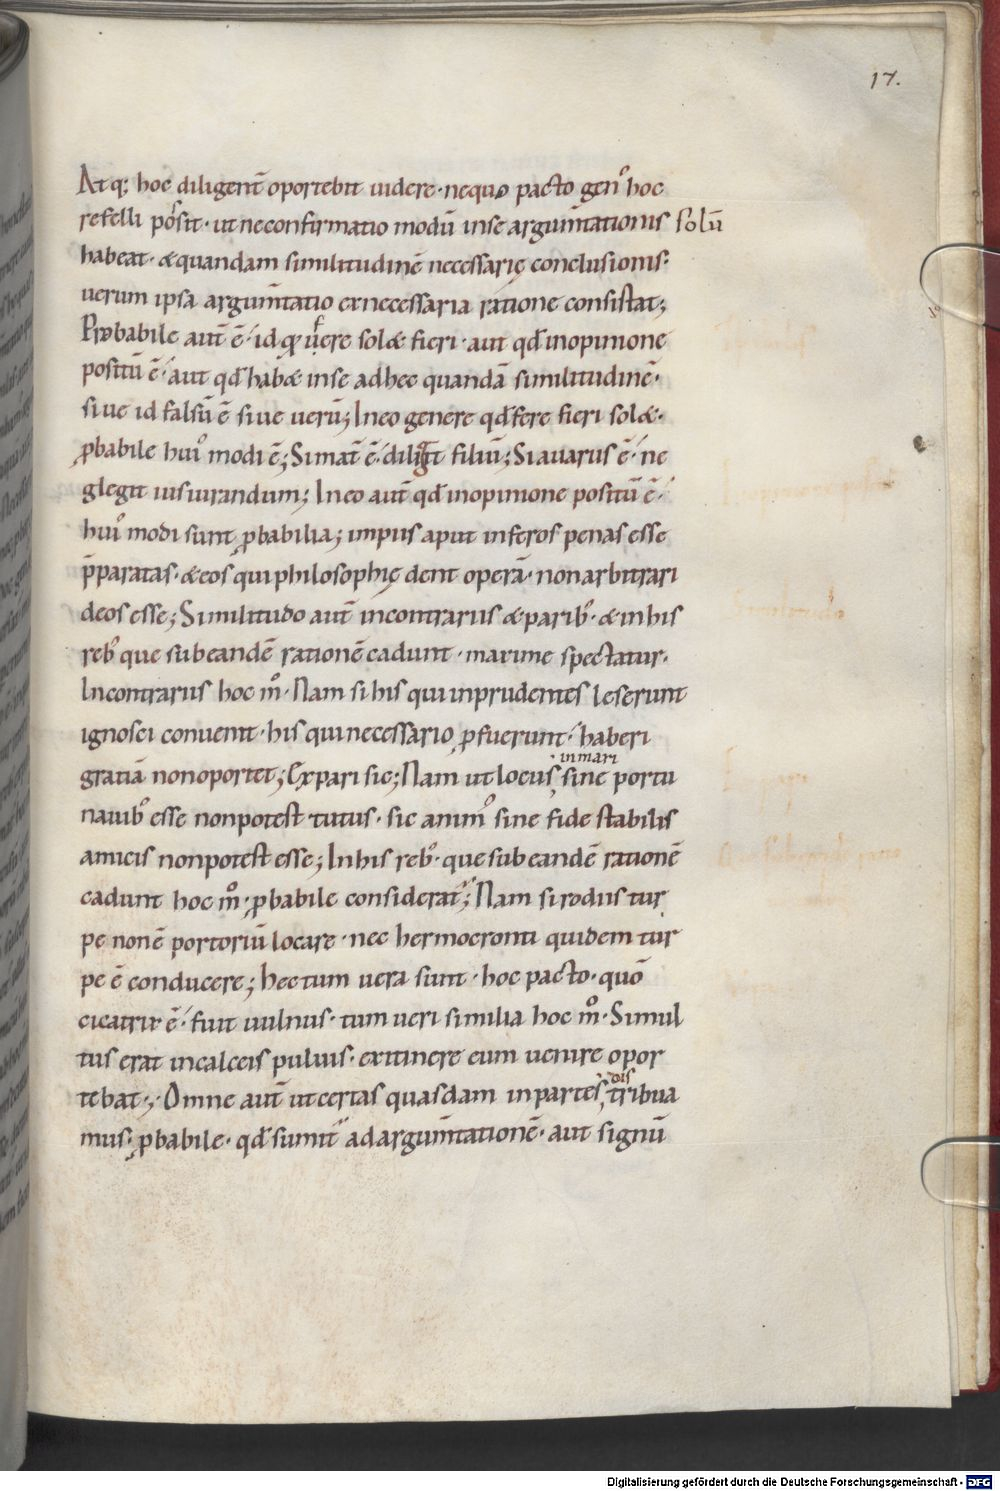 17.
At q; hoc diligent̄ oportebit uidere · nequo pacto gen᷒ hoc
refelli possit · ut neconfirmatio modū inse argum̄tationis solū
habeat · & quandam similitudinē necessarię conclusionis ·
uerum ipsa argum̄tatio exnecessaria ratione consistat;
Probabile aut̄ ē · id qđ fere sol& fieri · aut qđ inopinione
positū ē · aut qđ hab& inse adhec quandā similitudinē ·
siue id falsū ē siue uerū; Ineo genere qđ fere fieri sol& ·
ꝓbabile hui᷒ modi ē; Si mat̄ ē · diligit filiū; Si auarus ē · ne
glegit iusiurandum; Ineo aut̄ qđ inopinione positū ē ·
hui᷒ modi sunt ꝓbabilia; impiis aput inferos penas esse
p̄paratas · & eos qui philosophię dent operā · non arbitrari
deos esse; Similitudo aut̄ incontrariis & parib᷒ · & inhis
reb᷒ que subeandē rationē cadunt · maxime spectatur ·
Incontrariis hoc m̊ · Nam si his qui inprudentes leserunt
ignosci conuenit · his qui necessario ꝓfuerunt · haberi
gratiā nonoportet; Expari sic; Nam ut locus sine portu
in mari
nauib᷒ esse nonpotest tutus · sic anim᷒ sine fide stabilis
amicis nonpotest esse; Inhis reb᷒ · que subeandē rationē
cadunt hoc m̊ · ꝓbabile considerat᷑; Nam si rodiis tur
pe nonē portoriū locare · nec hermocronti quidem tur
pe ē conducere; hec tum uera sunt · hoc pacto · quō
cicatrix ē · fuit uulnus · tum ueri similia hoc m̊ · Si mul
tus erat incalceis puluis · exitinere eum uenire opor
tebat; Omne aut̄ ut certas quasdam inpartes tribua
dis
mus · ꝓbabile · qđ sumit᷑ ad argum̄tationē · aut signū
Digitalisierung gefördert durch die Deutsche Forschungsgemeinschaft - DFG